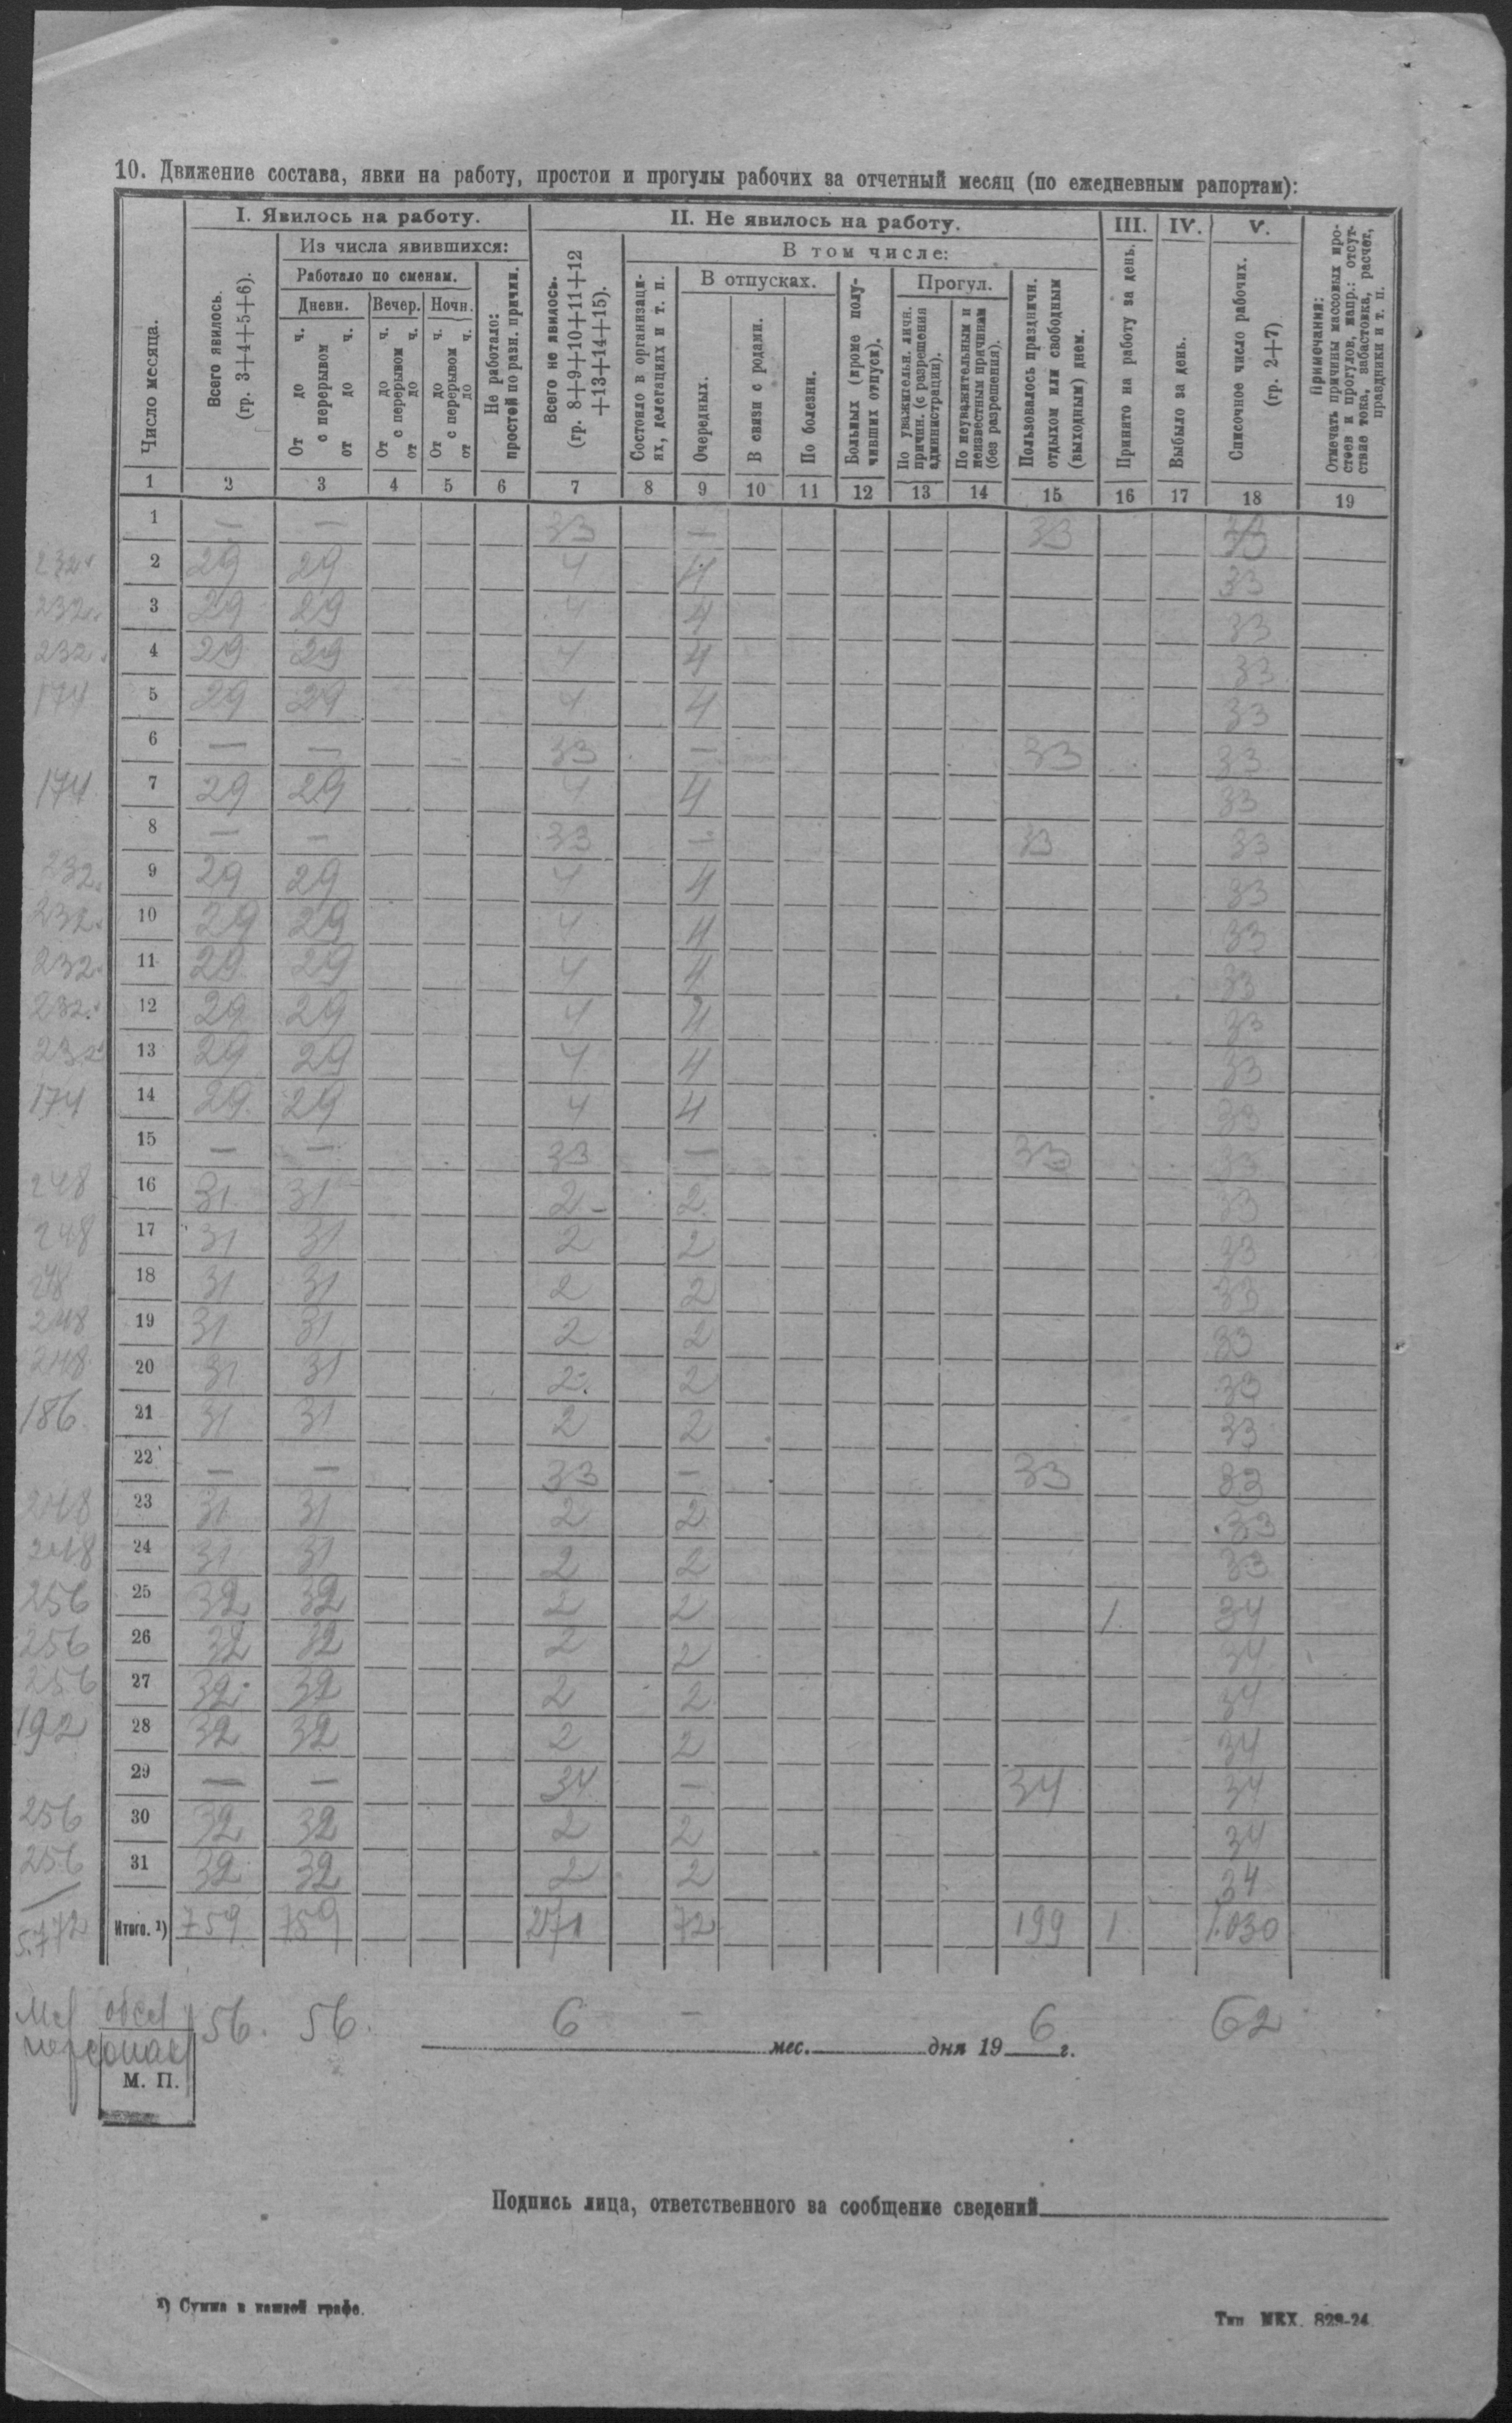 10. Движение состава, явки на работу, простои и прогулы рабочих за отчетный месяц (по ежедневным рапортам):
Число месяца.
I. Явилось на работу.
Всего явилось. (гр. 3+4+5+6).
Из числа явившихся:
Работало по сменам.
Дневн.
От до ч. с перерывом от до ч.
Вечер.
От до ч. с перерывом от до ч.
Ночн.
От до ч. с перерывом от до ч.
Не работало: простой по разн. причин.
II. Не явилось на работу.
Всего не явилось. (гр. 8+9+10+11+12+13+14+15).
В том числе:
Состояло в организациях, делегациях и т. п.
В отпусках.
Очередных.
В связи с родами.
По болезни.
Больных (кроме получивших отпуск).
Прогул.
По уважительн. личн. причин. (с разрешения администрации).
По неуважительным и неизвестным причинам (без разрешения).
Пользовалось праздничн. отдыхом или свободным (выходным) днем.
III.
Принято на работу за день.
IV.
Выбыло за день.
V.
Списочное число рабочих. (гр. 2+7).
Примечания:
Отмечать причины массовых простоев и прогулов, напр.: отсутствие тока, забастовка, расчет, праздники и т. п.
1 2 3 4 5 6 7 8 9 10 11 12 13 14 15 16 17 18 19
1 — — 33 — 33 33
232 2 29 29 4 4 33
232 3 29 29 4 4 33
232 4 29 29 4 4 33
174 5 29 29 4 4 33
6 — — 33 — 33 33
174 7 29 29 4 4 33
8 — — 33 — 33 33
232 9 29 29 4 4 33
232 10 29 29 4 4 33
232 11 29 29 4 4 33
232 12 29 29 4 4 33
232 13 29 29 4 4 33
174 14 29 29 4 4 33
15 — — 33 — 33 33
248 16 31 31 2 2 33
248 17 31 31 2 2 33
248 18 31 31 2 2 33
248 19 31 31 2 2 33
248 20 31 31 2 2 33
186 21 31 31 2 2 33
22 — — 33 — 33 33
248 23 31 31 2 2 33
248 24 31 31 2 2 33
256 25 32 32 2 2 1 34
256 26 32 32 2 2 34
256 27 32 32 2 2 34
192 28 32 32 2 2 34
29 — — 34 — 34 34
256 30 32 32 2 2 34
256 31 32 32 2 2 34
5.772 Итого. ¹) 759 759 271 72 199 1 1.030
56. 56. 6 — 6 62
персонал
мес. дня 19 г.
М. П.
Подпись лица, ответственного за сообщение сведений
¹) Сумма в каждой графе.
Тип МКХ. 829-24